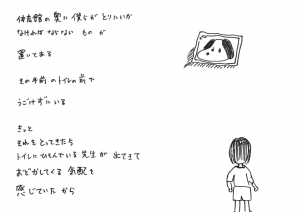 体育館の奥に僕らが とりにいか
なければ ならない ものが
置いてある
その手前 のトイレの前で
うごけずにいる
きっと
それを とってきたら
トイレに ひそんでいる 先生が 出てきて
おどかしてくる 気配を
感じていた から